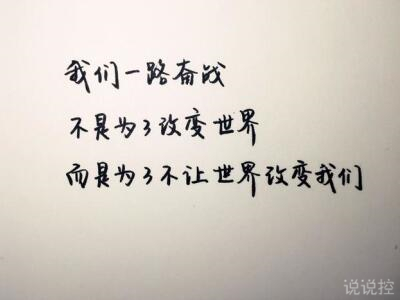 我们一路奋战
不是为了改变世界
而是为了不让世界改变我们
说说控